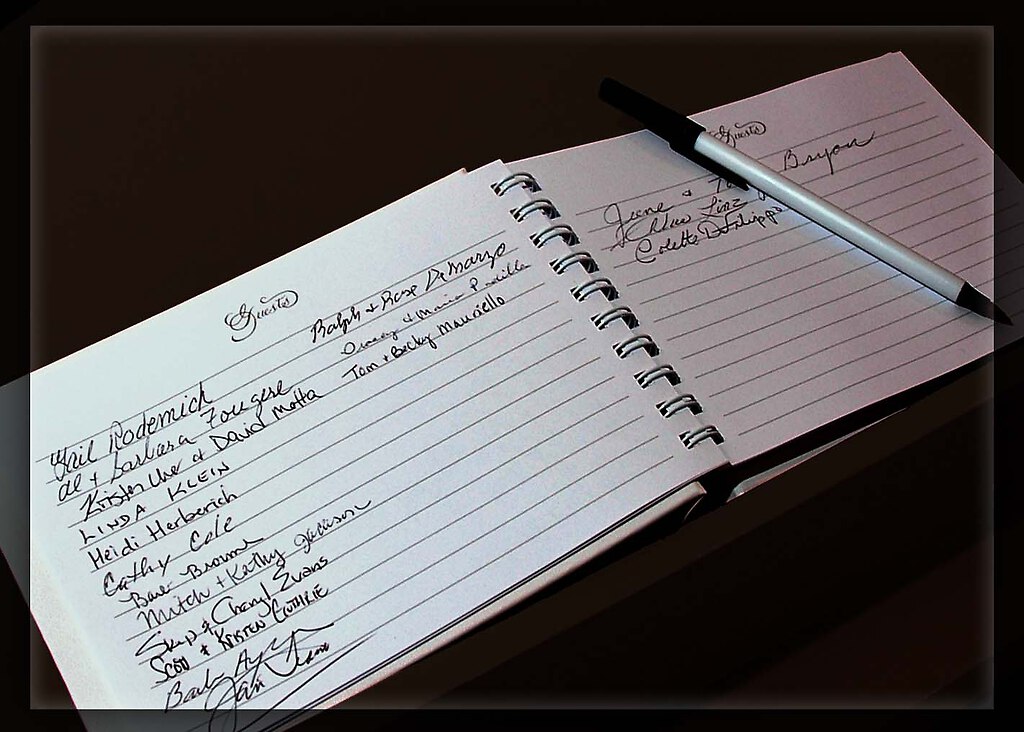 Guests
Ralph & Rose DiMarzo
& Maria Padilla
Tom & Becky Mauriello
Gail Rodemich
Al & Barbara Fougere
Kristen Uhe & David Matta
LINDA KLEIN
Heidi Herberich
Cathy Cole
Browne
Mitch & Kathy Jamison
Skip & Cheryl Evans
Scott & KRISTEN GUTHRIE
Jan
Guests
June & Bryon
Linz
Colette DiFilippo